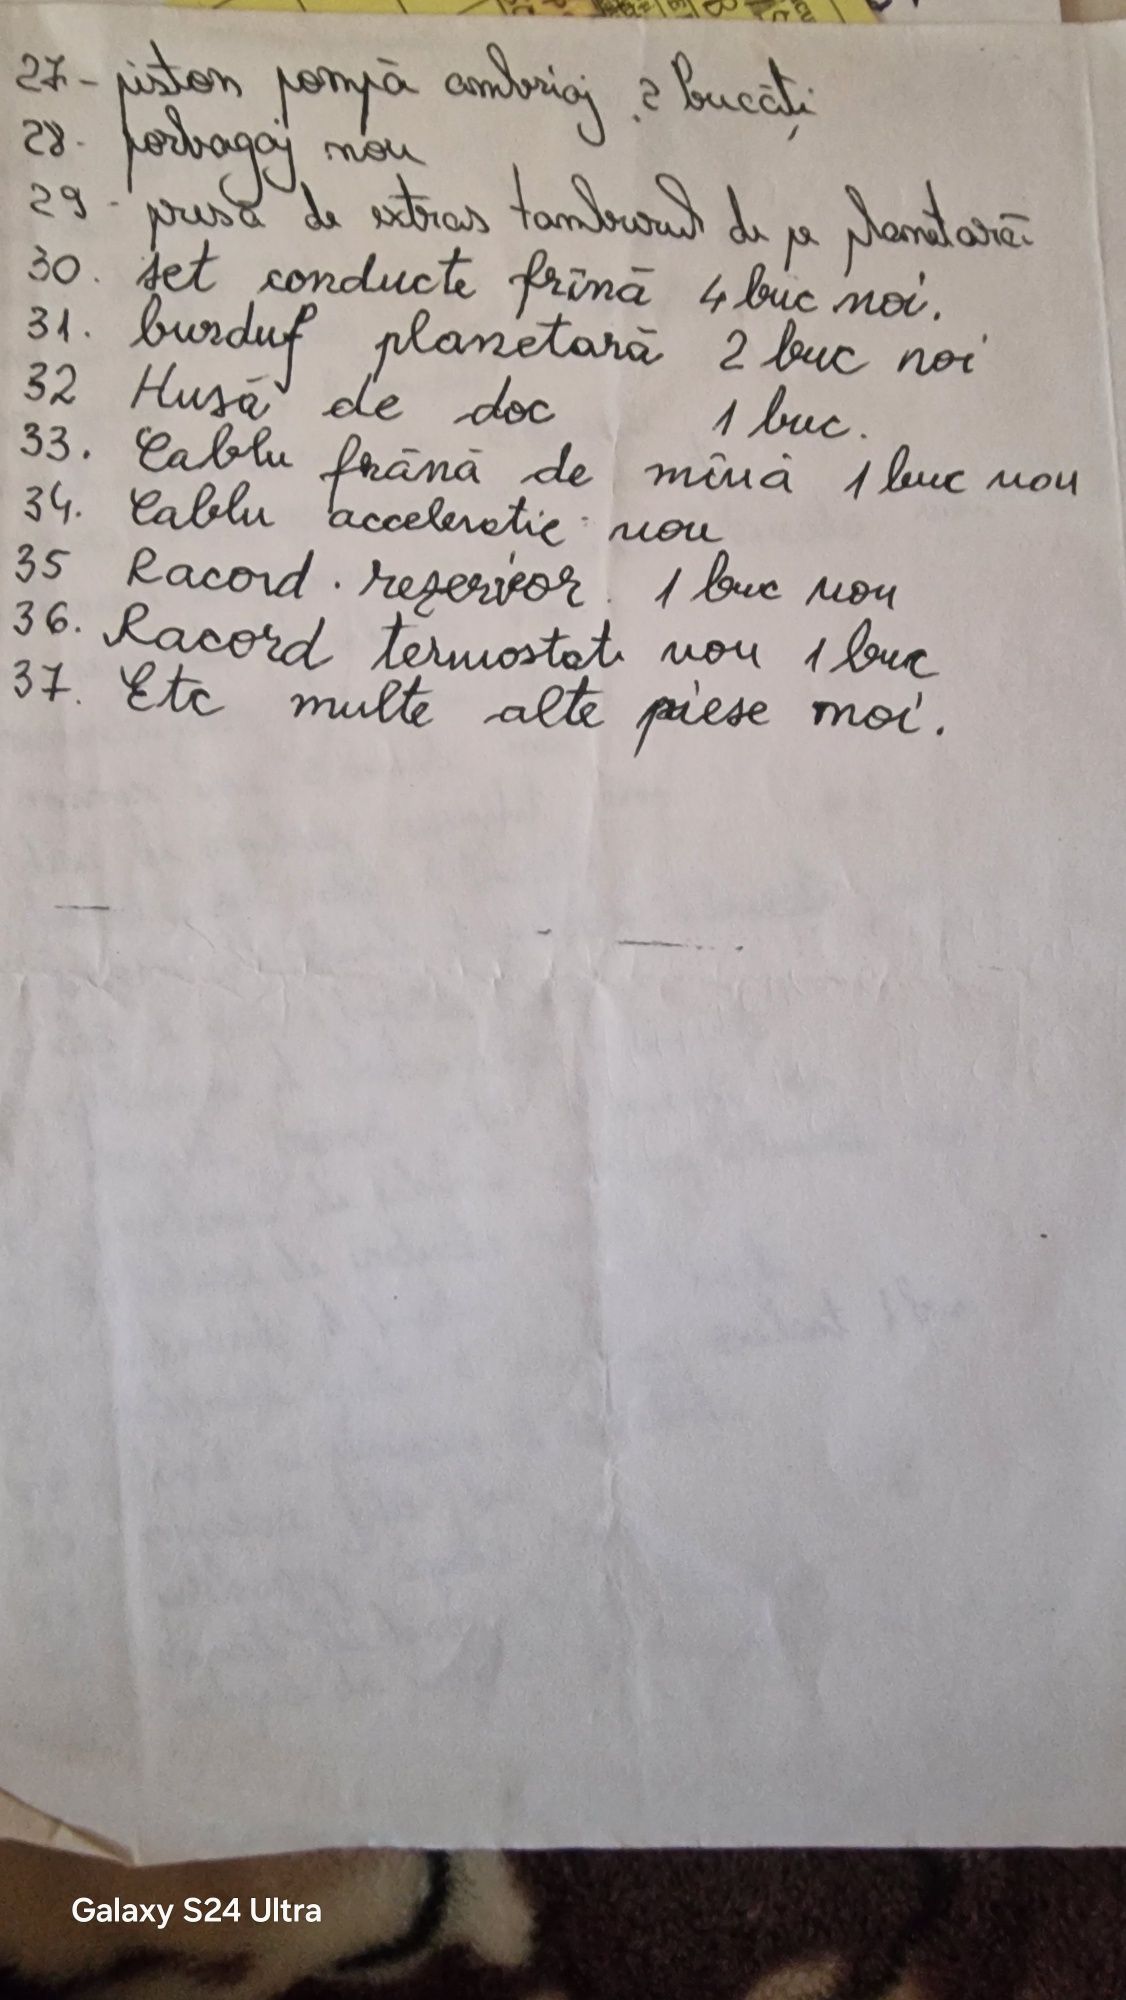 27- piston pompă ambriaj 2 bucăți
28- porbagaj nou
29- presă de extras tamburul de pe planetară
30. set conducte frînă 4 buc noi.
31. burduf planetară 2 buc noi
32 Husă de doc 1 buc.
33. Cablu frână de mînă 1 buc nou
34. Cablu acceleratie nou
35 Racord. rezervor. 1 buc nou
36. Racord termostat nou 1 buc
37. Etc multe alte piese noi.
Galaxy S24 Ultra